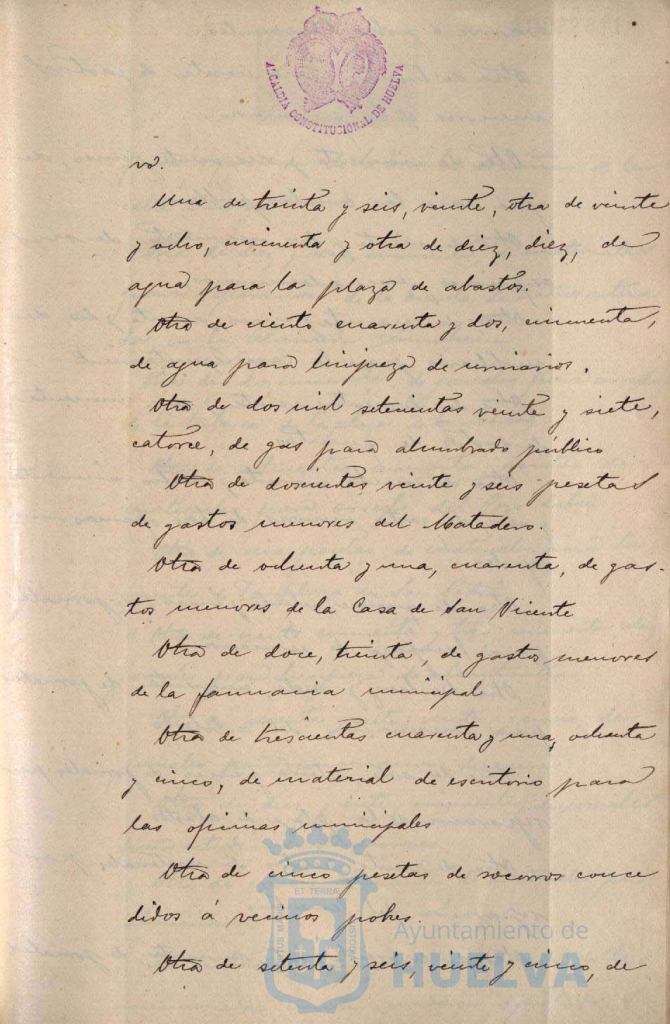 ALCALDIA CONSTITUCIONAL DE HUELVA
vo.
Una de treinta y seis, veinte, otra de veinte
y ocho, cincuenta y otra de diez, diez, de
agua para la plaza de abastos.
Otra de ciento cuarenta y dos, cincuenta,
de agua para limpieza de urinarios.
Otra de dos mil setecientas veinte y siete,
catorce, de gas para alumbrado público
Otra de doscientas veinte y seis pesetas
de gastos menores del Matadero.
Otra de ochenta y una, cuarenta, de gas-
tos menores de la Casa de San Vicente
Otra de doce, treinta, de gastos menores
de la farmacia municipal
Otra de trescientas cuarenta y una, ochenta
y cinco, de material de escritorio para
las oficinas municipales
Otra de cinco pesetas de socorros conce
didos á vecinos pobres.
Otra de setenta y seis, veinte y cinco, de
Ayuntamiento de
HUELVA